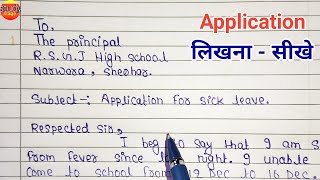 Application
लिखना - सीखे
To,
The principal
R.S.G.J High school
Narwara, sheohar.
Subject-: Application for sick leave.
Respected Sir,
I beg to say that I am s
from fever since last night. I unable
come to school from 12 Dec to 16 Dec.